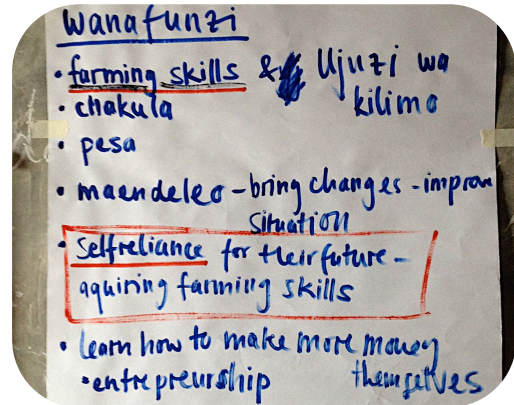 wanafunzi
• farming skills & Ujuzi wa
kilimo
• chakula
• pesa
• maendeleo - bring changes - improv
situation
• Selfreliance for their future -
aquiring farming skills
• learn how to make more money
themselves
• entrepreurship